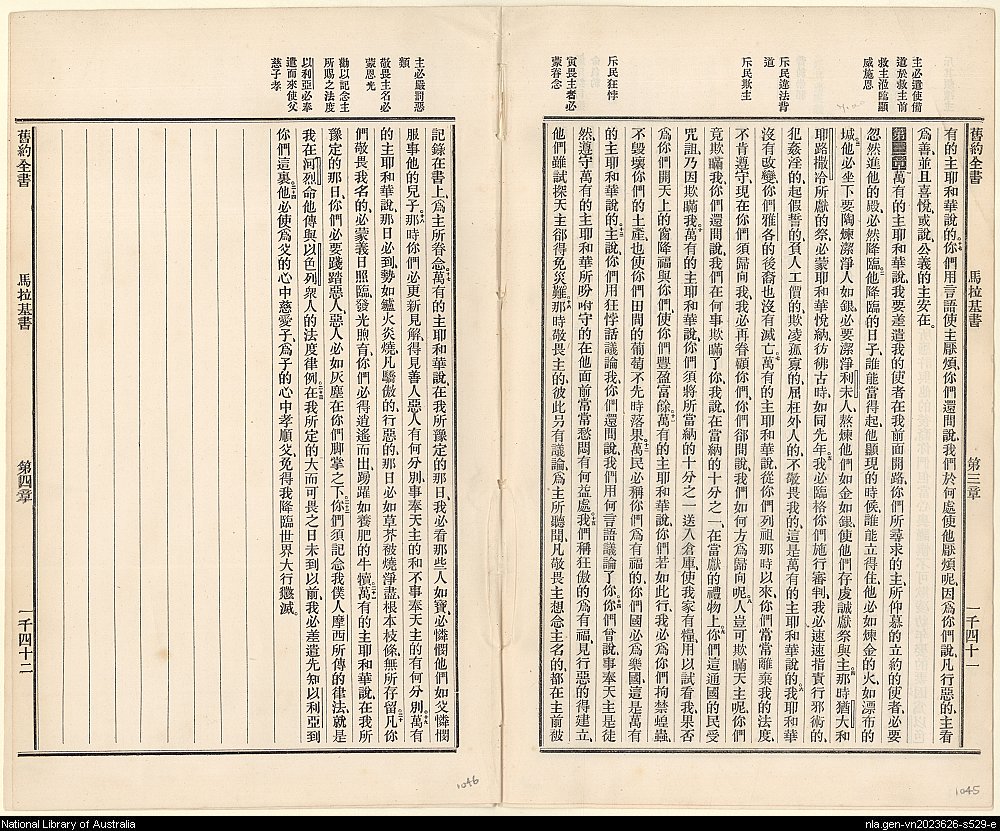 舊約全書
馬拉基書
第三章
一千四十一
主必遣使備
道於救主前
救主涖臨顯
威施恩
斥民違法背
道
斥民欺主
斥民狂悖
寅畏主者必
蒙眷念
有的主耶和華說的、你們用言語使主厭煩、你們還問說、我們於何處使他厭煩呢、因爲你們說、凡行惡的、主看
爲善、並且喜悅、或說公義的主安在。
第三章萬有的主耶和華說、我要差遣我的使者、在我前面開路、你們所尋求的主、所仰慕的立約的使者、必要
忽然進他的殿、必然降臨、他降臨的日子、誰能當得起、他顯現的時候、誰能立得住、他必如煉金的火、如漂布的
堿、他必坐下要陶煉潔淨人如銀、必要潔淨利未人、熬煉他們如金如銀、使他們存虔誠獻祭與主、那時猶大和
耶路撒冷所獻的祭、必蒙耶和華悅納、彷彿古時、如同先年、我必臨格你們施行審判、我必速速指責行邪術的、
犯姦淫的、起假誓的、負人工價的、欺凌孤寡的、屈枉外人的、不敬畏我的、這是萬有的主耶和華說的、我耶和華
沒有改變、你們雅各的後裔也沒有滅亡、萬有的主耶和華說、從你們列祖那時以來、你們常常離棄我的法度、
不肯遵守、現在你們須歸向我、我必再眷顧你們、你們郤問說、我們如何方爲歸向呢、人豈可欺瞞天主呢、你們
竟欺瞞我、你們還問說、我們在何事欺瞞了你、我說、在當納的十分之一、在當獻的禮物上、你們這通國的民受
咒詛、乃因欺瞞我、萬有的主耶和華說、你們須將所當納的十分之一、送入倉庫、使我家有糧、用以試看我、果否
爲你們開天上的窗、降福與你們、使你們豐盈富餘、萬有的主耶和華說、你們若如此行、我必爲你們拘禁蝗蟲、
不毀壞你們的土產、也使你們田間的葡萄不先時落果、萬民必稱你們爲有福的、你們國必爲樂國、這是萬有
的主耶和華說的、主說、你們用狂悖話議論我、你們還問說、我們用何言語議論了你、你們曾說、事奉天主是徒
然、遵守萬有的主耶和華所吩咐守的、在他面前常常愁悶、有何益處、我們稱狂傲的爲有福、見行惡的得建立、
他們雖試探天主、郤得免災難、那時敬畏主的、彼此另有議論、爲主所聽聞、凡敬畏主想念主名的、都在主前被
舊約全書
馬拉基書
第四章
一千四十二
主必嚴罰惡
類
敬畏主名必
蒙恩光
勸以記念主
所賜之法度
以利亞必奉
遣而來使父
慈子孝
記錄在書上、爲主所眷念、萬有的主耶和華說、在我所豫定的那日、我必看那些人如寶、必憐憫他們、如父憐憫
服事他的兒子、那時你們必更新見解、得見善人惡人有何分別、事奉天主的和不事奉天主的有何分別、萬有
的主耶和華說、那日必到、勢如鑪火炎燒、凡驕傲的行惡的、那日必如草芥被燒淨盡、根本枝條無所存留、凡你
們敬畏我名的、必蒙義日照臨、發光煦育、你們必得逍遙而出、踴躍如養肥的牛犢、萬有的主耶和華說、在我所
豫定的那日、你們必要踐踏惡人、惡人必如灰塵在你們脚掌之下、你們須記念我僕人摩西所傳的律法、就是
我在河烈命他傳與以色列衆人的法度律例、在我所定的大而可畏之日未到以前、我必差遣先知以利亞到
你們這裏、他必使爲父的心中慈愛子、爲子的心中孝順父、免得我降臨世界、大行懲滅。
1046
1045
National Library of Australia
nla.gen-vn2023626-s529-e